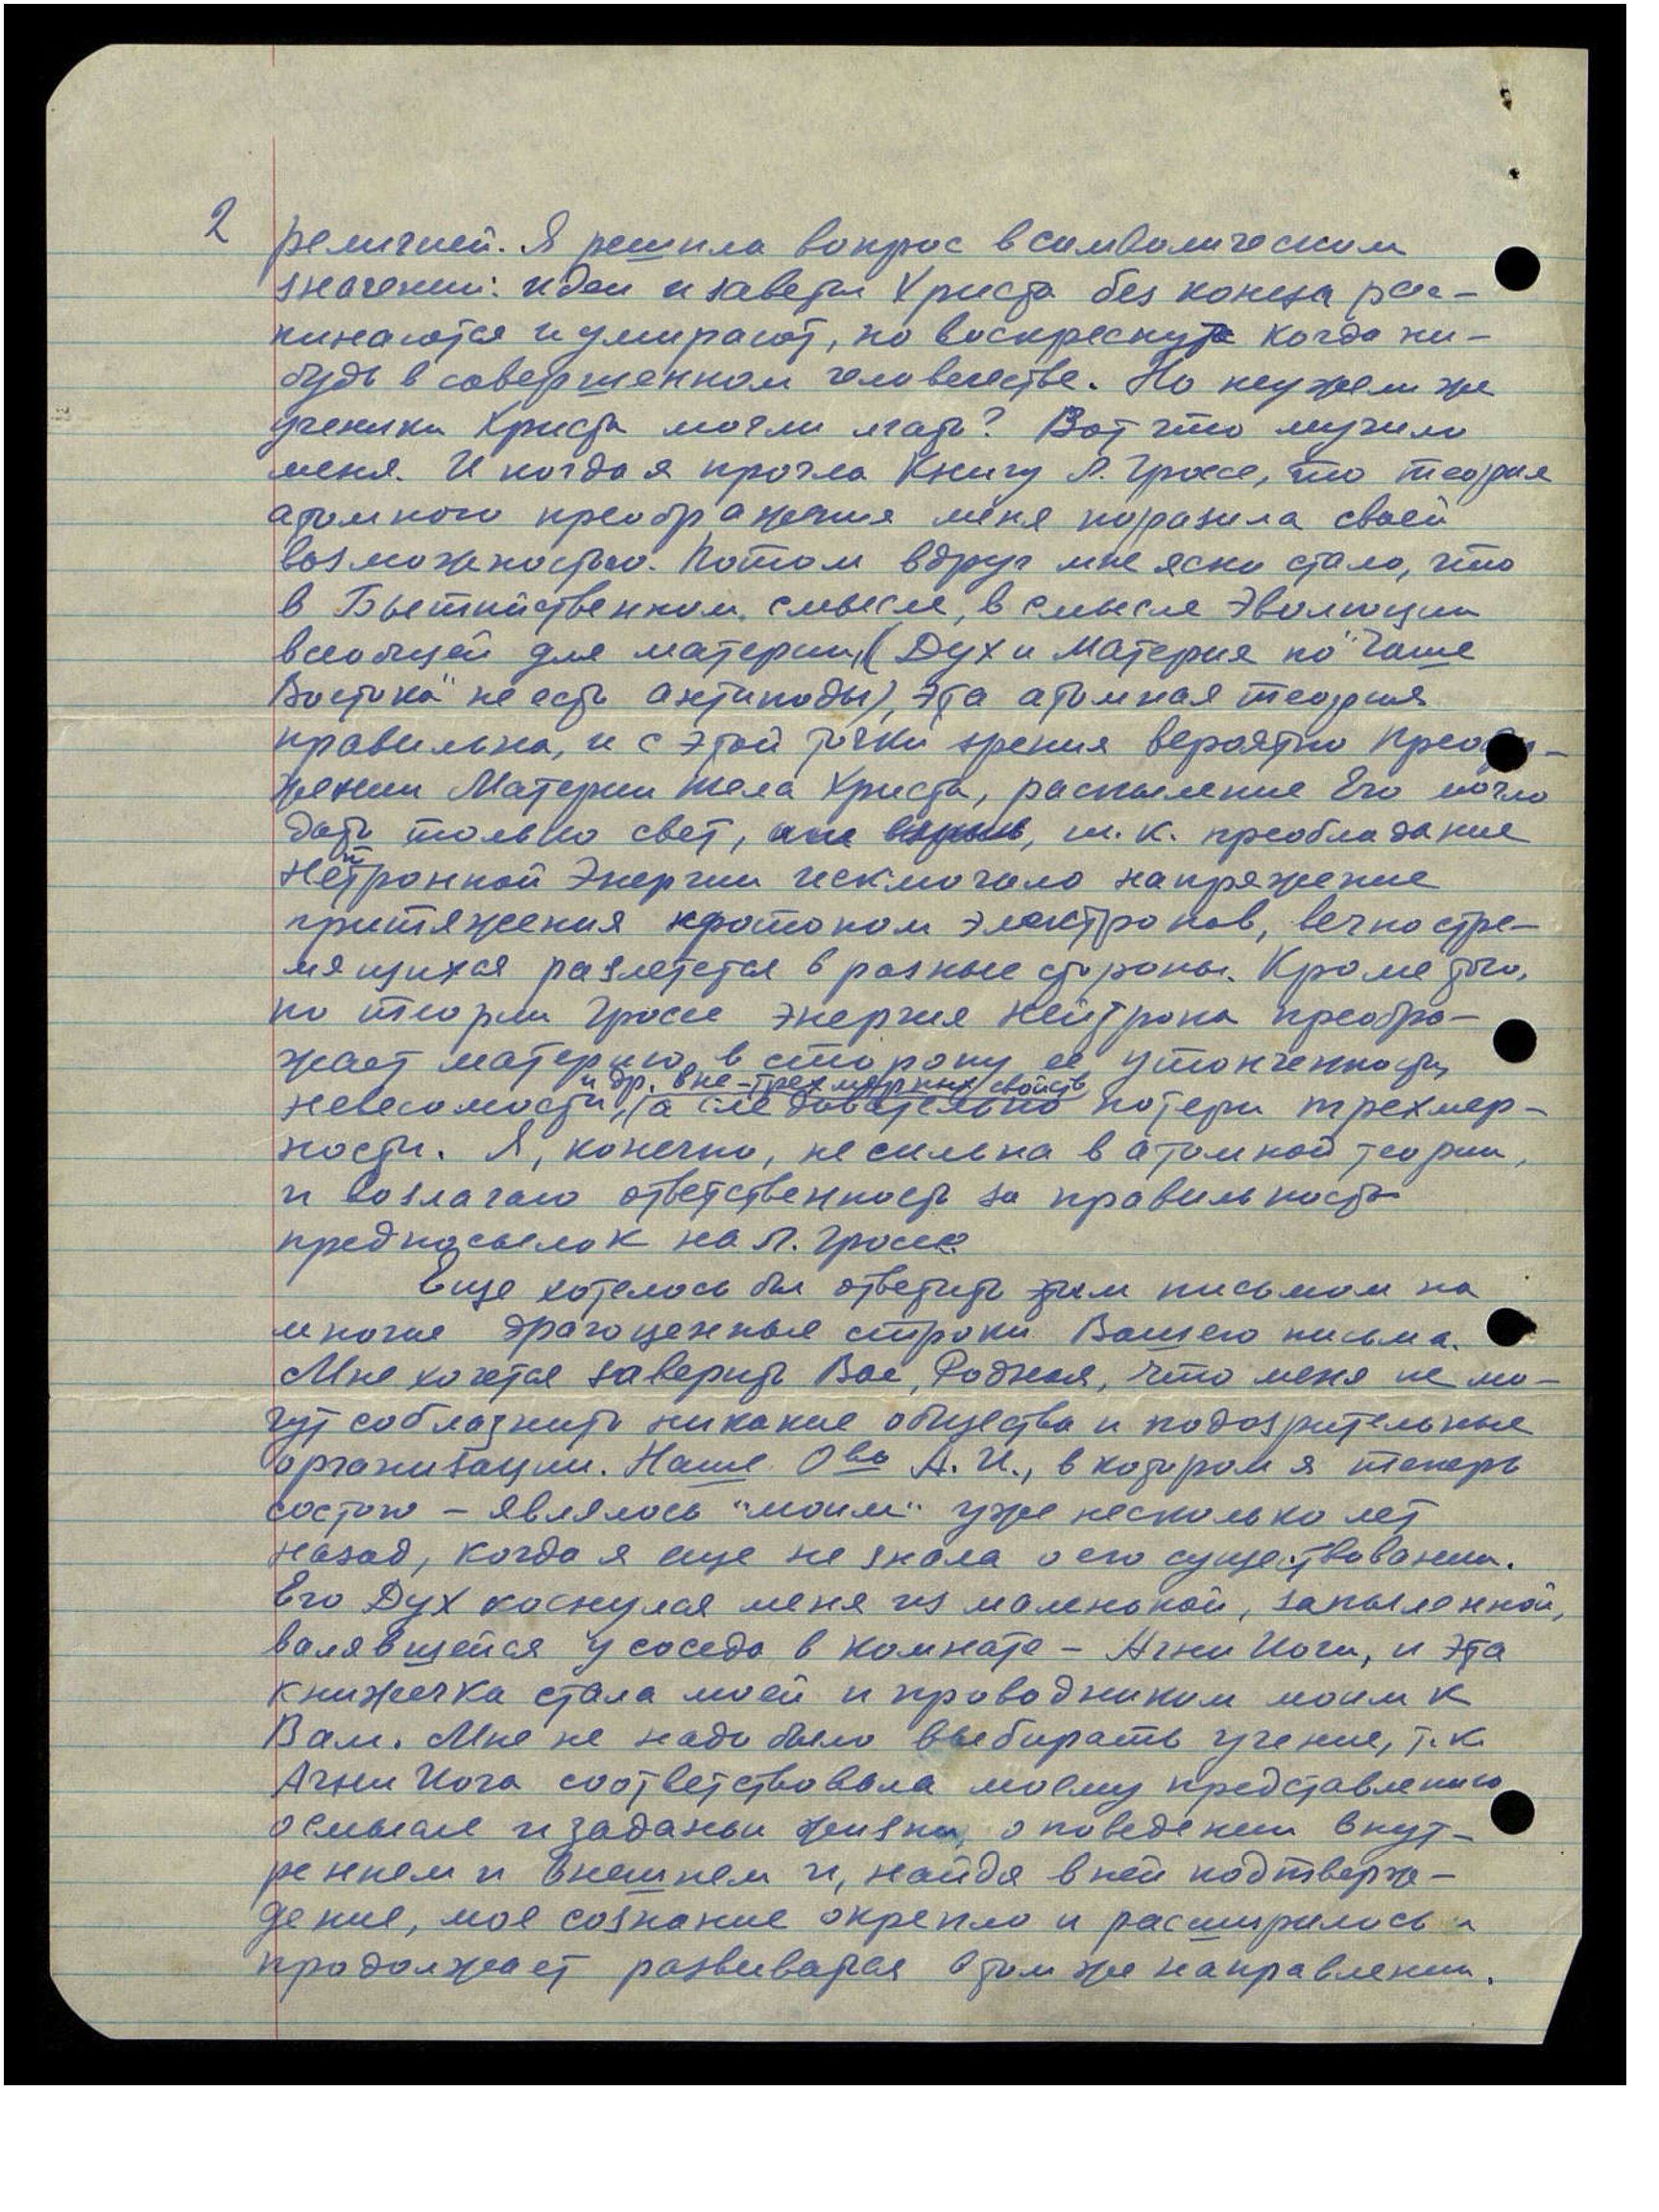 2
религией. Я решила вопрос в символическом
значении: идеи и заветы Христа без конца рас-
пинаются и умирают, но воскреснут когда ни-
будь в совершенном человечестве. Но неужели же
ученики Христа могли лгать? Вот что мучило
меня. И когда я прочла Книгу Л. Гроссе, то теория
атомного преображения меня поразила своей
возможностью. Потом вдруг мне ясно стало, что
в смысле, в смысле Эволюции
всеобщей для материи, (Дух и Материя по "Чаше
Востока" не есть антиподы), эта атомная теория
правильна, и с этой точки зрения вероятно Преобра-
жении Материи тела Христа, распыление Его могло
дать только свет, а не взрыв, т. к. преобладание
Нейтронной Энергии исключало напряжение
притяжения протоном электронов, вечно стре-
мящихся разлететься в разные стороны. Кроме того,
по теории Гроссе энергия нейтрона преобра-
жает материю в сторону ее утонченности,
и др. вне-трехмерных свойств
невесомости, (а следовательно потери трехмер-
ности. Я, конечно, не сильна в атомной теории,
и возлагаю ответственность за правильность
предпосылок на Л. Гроссе.
Еще хотелось бы ответить этим письмом на
многие драгоценные строки Вашего письма.
Мне хочется заверить Вас, Родная, что меня не мо-
гут соблазнить никакие общества и подозрительные
организации. Наше Ово А. И., в котором я теперь
состою – являлось "моим" уже несколько лет
назад, когда я еще не знала о его существовании.
Его Дух коснулся меня из маленькой, запыленной,
валявшейся у соседа в комнате – Агни Йоги, и эта
книжечка стала моей и проводником моим к
Вам. Мне не надо было выбирать учение, т. к.
Агни Йога соответствовала моему представлению
о смысле и заданьи жизни, о поведении внут-
реннем и внешнем и, найдя в ней подтверж-
дение, мое сознание окрепло и расширилось и
продолжает развиваться в том же направлении.